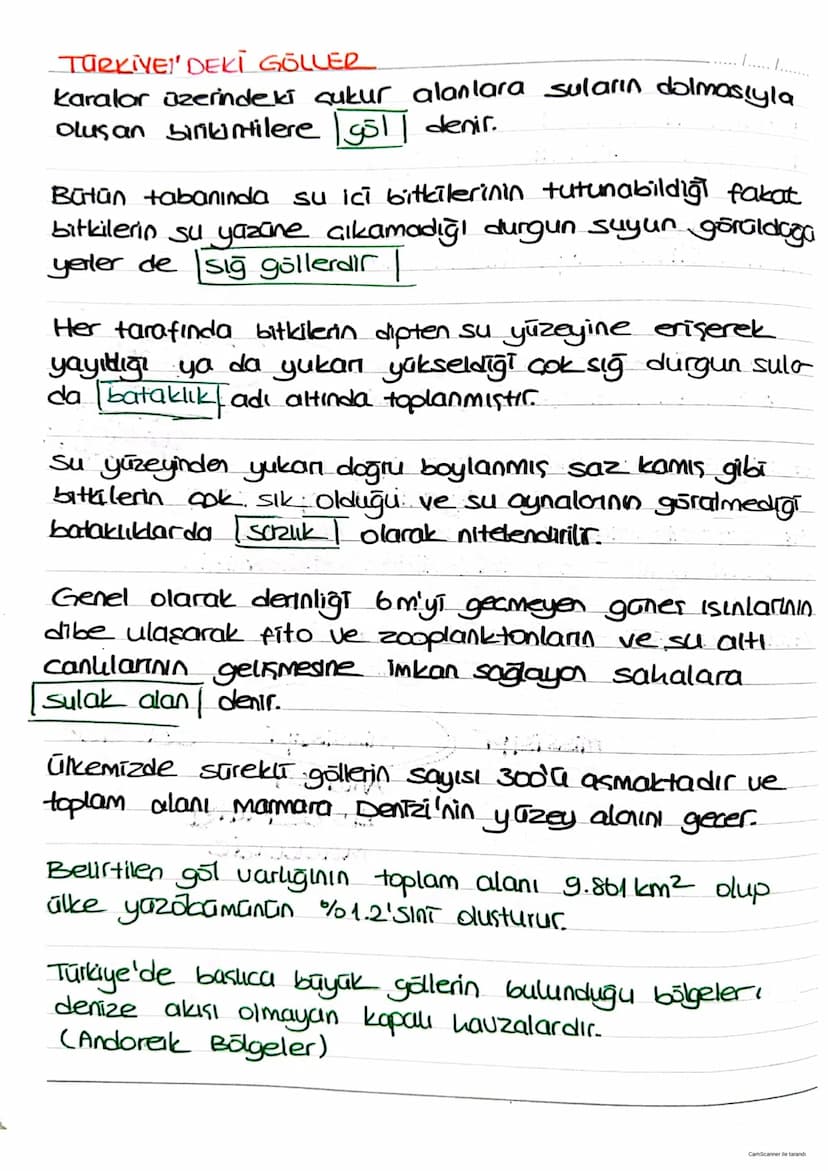 TÜRKİYE'DEKİ GÖLLER
...../...../.....
Karalar üzerindeki çukur alanlara suların dolmasıyla
oluşan birikintilere göl denir.
Bütün tabanında su içi bitkilerinin tutunabildiği fakat
bitkilerin su yüzüne çıkamadığı durgun suyun görüldüğü
yerler de sığ göllerdir
Her tarafında bitkilerin dipten su yüzeyine erişerek
yayıldığı ya da yukarı yükseldiği çok sığ durgun sula-
da bataklık adı altında toplanmıştır.
Su yüzeyinden yukarı doğru boylanmış saz kamış gibi
bitkilerin çok sık olduğu ve su aynalarının görülmediği
bataklıklarda sazlık olarak nitelendirilir.
Genel olarak derinliği 6m'yi geçmeyen güneş ışınlarının
dibe ulaşarak fito ve zooplanktonların ve su altı
canlılarının gelişmesine imkan sağlayan sahalara
sulak alan denir.
Ülkemizde sürekli göllerin sayısı 300'ü aşmaktadır ve
toplam alanı Marmara Denizi'nin yüzey alanını geçer.
Belirtilen göl varlığının toplam alanı 9.861 km² olup
ülke yüzölçümünün %1.2'sini oluşturur.
Türkiye'de başlıca büyük göllerin bulunduğu bölgeleri
denize akışı olmayan kapalı havzalardır.
(Andoreik Bölgeler)
CamScanner ile tarandı